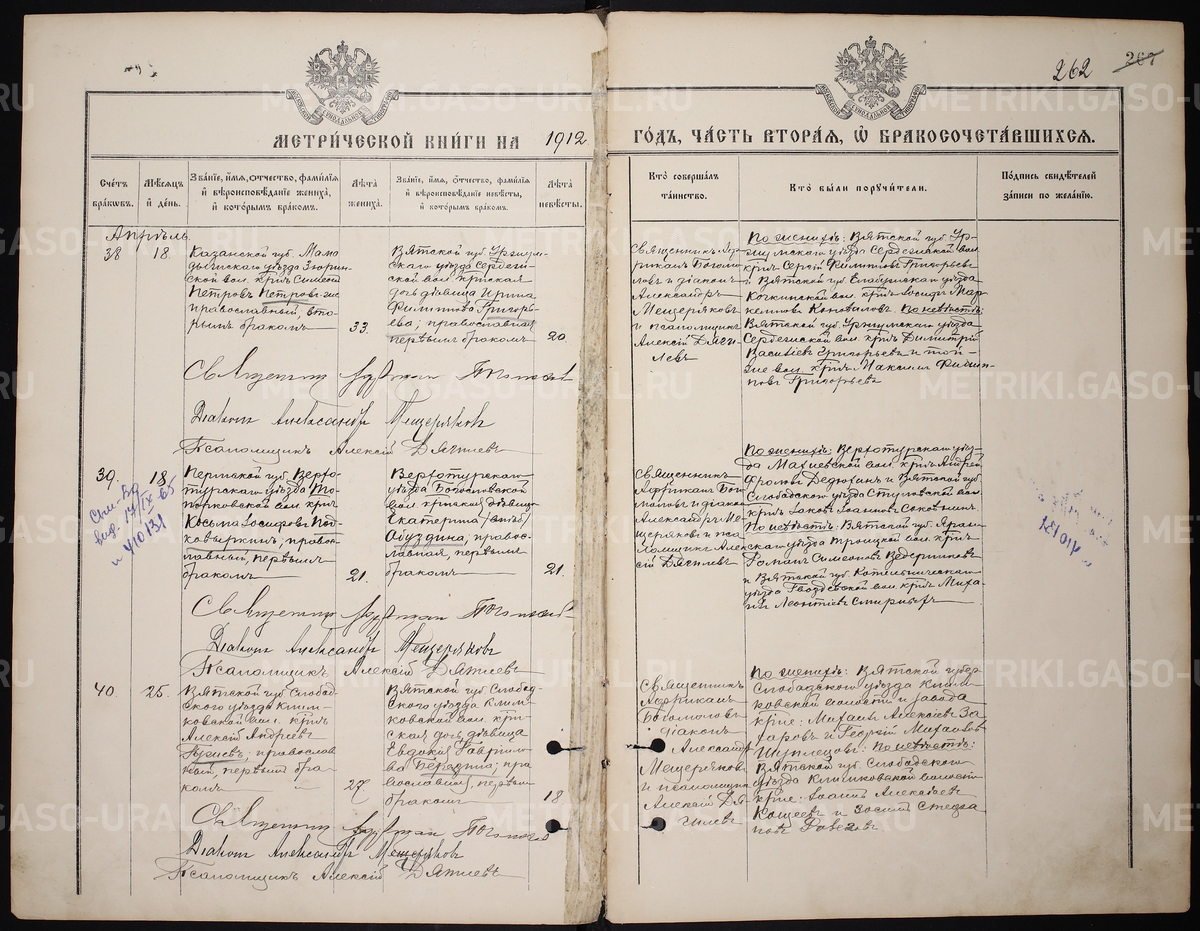 262
МЕТРИ́ЧЕСКОЙ КНИ́ГИ НА 1912 ГО́ДЪ, ЧА́СТЬ ВТОРА́Я, Ѡ БРАКОСОЧЕТА́ВШИХСЯ.
Счétъ бра́ковъ.
Мѣ́сяцъ и҆ де́нь.
Зва́нїе, и҆́мя, о҆́тчество, фами́лїя и҆ вѣроисповѣ́данїе жениха̀, и҆ кото́рымъ бра́комъ.
Лѣ́та жениха̀.
Зва́нїе, и҆́мя, о҆́тчество, фами́лїя и҆ вѣроисповѣ́данїе невѣ́сты, и҆ кото́рымъ бра́комъ.
Лѣ́та невѣ́сты.
Кто̀ соверша́лъ та́инство.
Кто̀ бы́ли поручи́тели.
По́дпись свидѣ́телей за́писи по жела́нїю.
Апрѣль.
38
18.
Казанской губ. Мама
дышскаго уѣзда
ской вол. кр-нъ Симеонъ
Петровъ Петровъ же
православный, вто
рымъ бракомъ
33.
Вятской губ. Уржум-
скаго уѣзда Сердеж-
ской вол. кр-нская
дочь дѣвица Ирина
Филиппова Григорь-
ева, православная
первымъ бракомъ
20.
Священникъ Аф
риканъ Богомо
ловъ и діаконъ
Александръ
Мещеряковъ
и псаломщикъ
Алексій Дяги-
левъ
По женихѣ: Вятской губ. Ур-
жумскаго уѣзда Сердежской вол.
кр-нъ Сергій Филипповъ Григорьевъ
и Вятской губ. Елабужскаго уѣзда
Кокшинской вол. кр-нъ Іосифъ Мар
келловъ Коноваловъ. По невѣстѣ:
Вятской губ. Уржумскаго уѣзда
Сердежской вол. кр-нъ Димитрій
Васильевъ Григорьевъ и той-
же вол. кр-нъ Максимъ Филип-
повъ Григорьевъ
Священникъ Африканъ Богомоловъ
Діаконъ Александръ Мещеряковъ
Псаломщикъ Алексій Дягилевъ
39.
18.
Пермской губ. Верхо-
турскаго уѣзда То-
порковской вол. кр-нъ
Косьма Іосифовъ Под-
ковыркинъ, право-
славный, первымъ
бракомъ
21.
Верхотурскаго
уѣзда Богословской
вол. кр-нская дѣвица
Екатерина
Обуздина, правос-
лавная, первымъ
бракомъ
21.
Священникъ
Африканъ Бого
моловъ и діаконъ
Александръ Ме-
щеряковъ и пса
ломщикъ Алек
сій Дягилевъ
По женихѣ: Верхотурскаго уѣз-
да Махневской вол. кр-нъ Андрей
Фроловъ Дедюхинъ и Вятской губ.
Слободскаго уѣзда Стуловской вол.
кр-нъ Іаковъ Іоанновъ Соковнинъ.
По невѣстѣ: Вятской губ. Яран-
скаго уѣзда Троицкой вол. кр-нъ
Романъ Симеоновъ Ведерниковъ
и Вятской губ. Котельническаго
уѣзда Гвоздевской вол. кр-нъ Миха-
илъ Леонтіевъ Смирновъ
17/IX-65
410131
410131
Священникъ Африканъ Богомоловъ
Діаконъ Александръ Мещеряковъ
Псаломщикъ Алексій Дягилевъ
40.
25.
Вятской губ. Слобод-
ского уѣзда Клим-
ковской вол. кр-нъ
Алексій Андреевъ
православ
ный, первымъ бра-
комъ
27
Вятской губ. Слобод-
ского уѣзда Клим-
ковской вол. кр-н-
ская дочь дѣвица
Евдокія Гаврило-
ва пра
вославная, первымъ
бракомъ
18
Священникъ
Африканъ
Богомоловъ
діаконъ
Александръ
Мещеряковъ
и псаломщикъ
Алексій Дя-
гилевъ
По женихѣ: Вятской губ.
Слободскаго уѣзда Клим-
ковской волости и завода
кр-не: Михаилъ Алексіевъ За
харовъ и Георгій Михаиловъ
По невѣстѣ:
Вятской губ. Слободскаго
уѣзда Климковской волости
кр-не: Іоаннъ Алексіевъ
Кощеевъ и Зосимъ
Священникъ Африканъ Богомоловъ
Діаконъ Александръ Мещеряковъ
Псаломщикъ Алексій Дягилевъ
METRIKI.GASO-URAL.RU